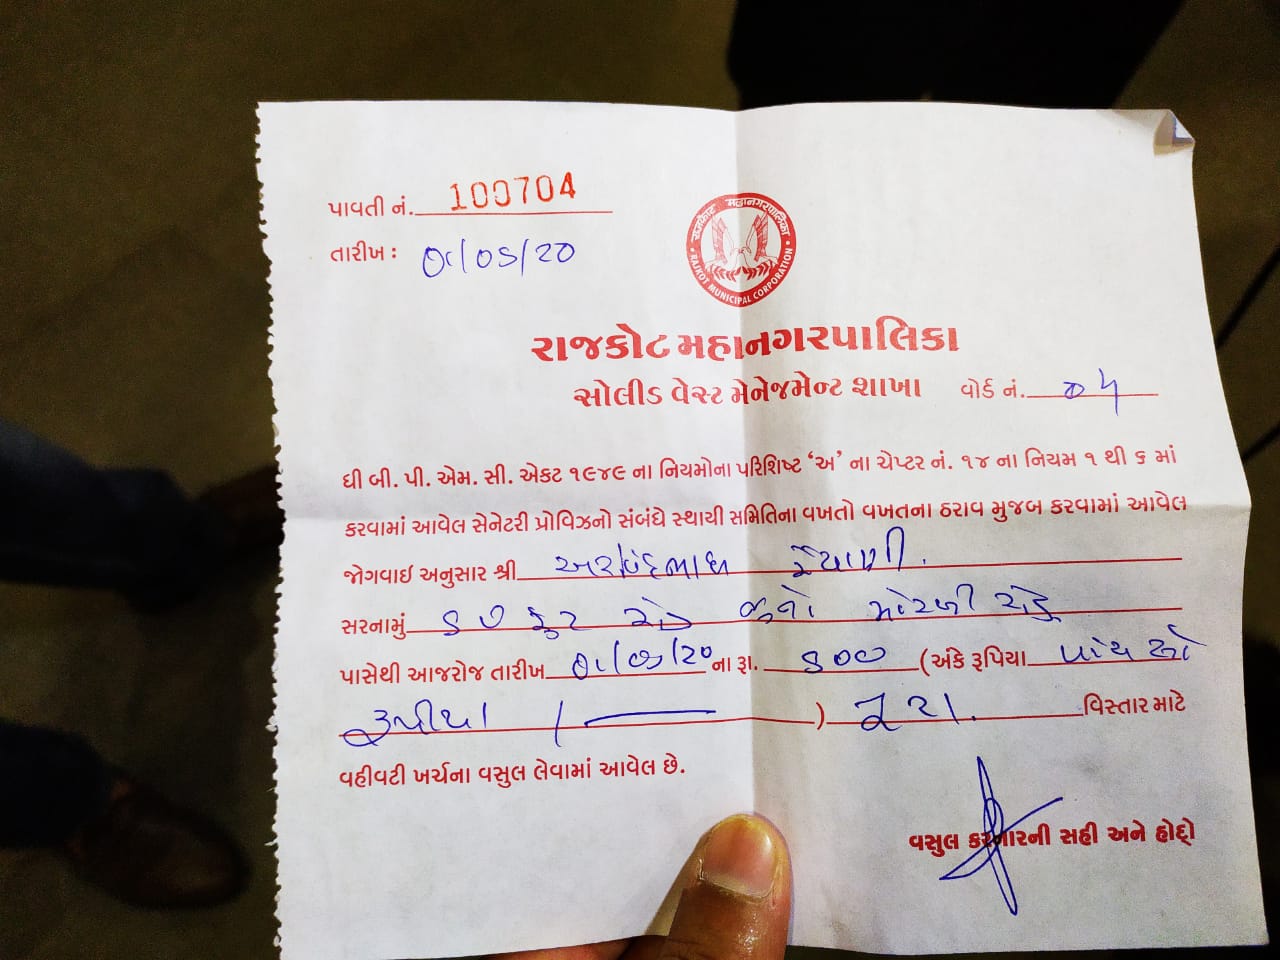 પાવતી નં. 100704
તારીખ : ૦૮/૦૬/૨૦
રાજકોટ મહાનગરપાલિકા
RAJKOT MUNICIPAL CORPORATION
રાજકોટ મહાનગરપાલિકા
સોલીડ વેસ્ટ મેનેજમેન્ટ શાખા વોર્ડ નં. ૦૫
ધી બી. પી. એમ. સી. એકટ ૧૯૪૯ ના નિયમોના પરિશિષ્ટ ‘અ’ ના ચેપ્ટર નં. ૧૪ ના નિયમ ૧ થી ૬ માં
કરવામાં આવેલ સેનેટરી પ્રોવિઝનો સંબંધે સ્થાયી સમિતિના વખતો વખતના ઠરાવ મુજબ કરવામાં આવેલ
જોગવાઇ અનુસાર શ્રી અરવિંદભાઇ રૈયાણી.
સરનામું ફુટ રોડ જુનો મોરબી રોડ
પાસેથી આજરોજ તારીખ ૦૮/૦૬/૨૦ ના રૂા. ૫૦૦ (અંકે રૂપિયા પાંચ સો
રૂપીયા /—) વિસ્તાર માટે
વહીવટી ખર્ચના વસુલ લેવામાં આવેલ છે.
વસુલ કરનારની સહી અને હોદ્દો